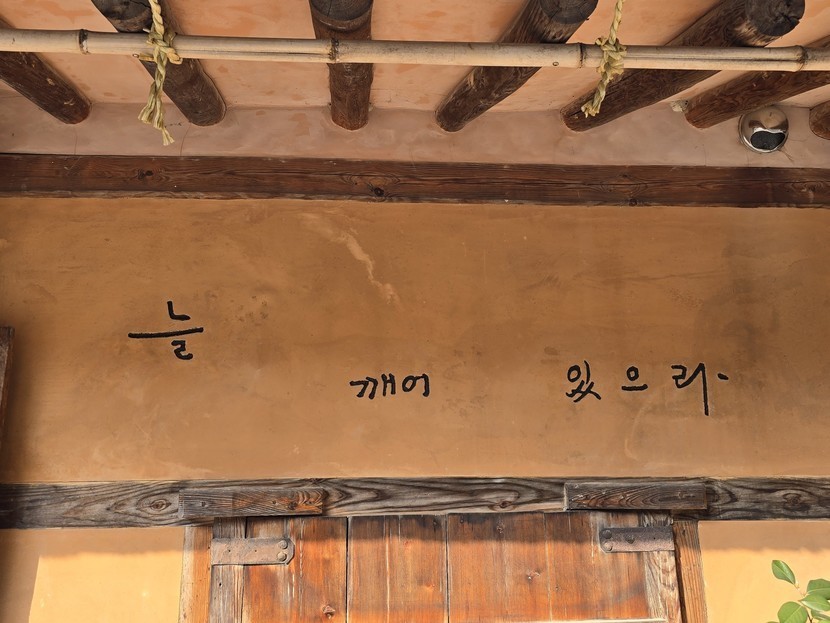 늘 깨어 있으라